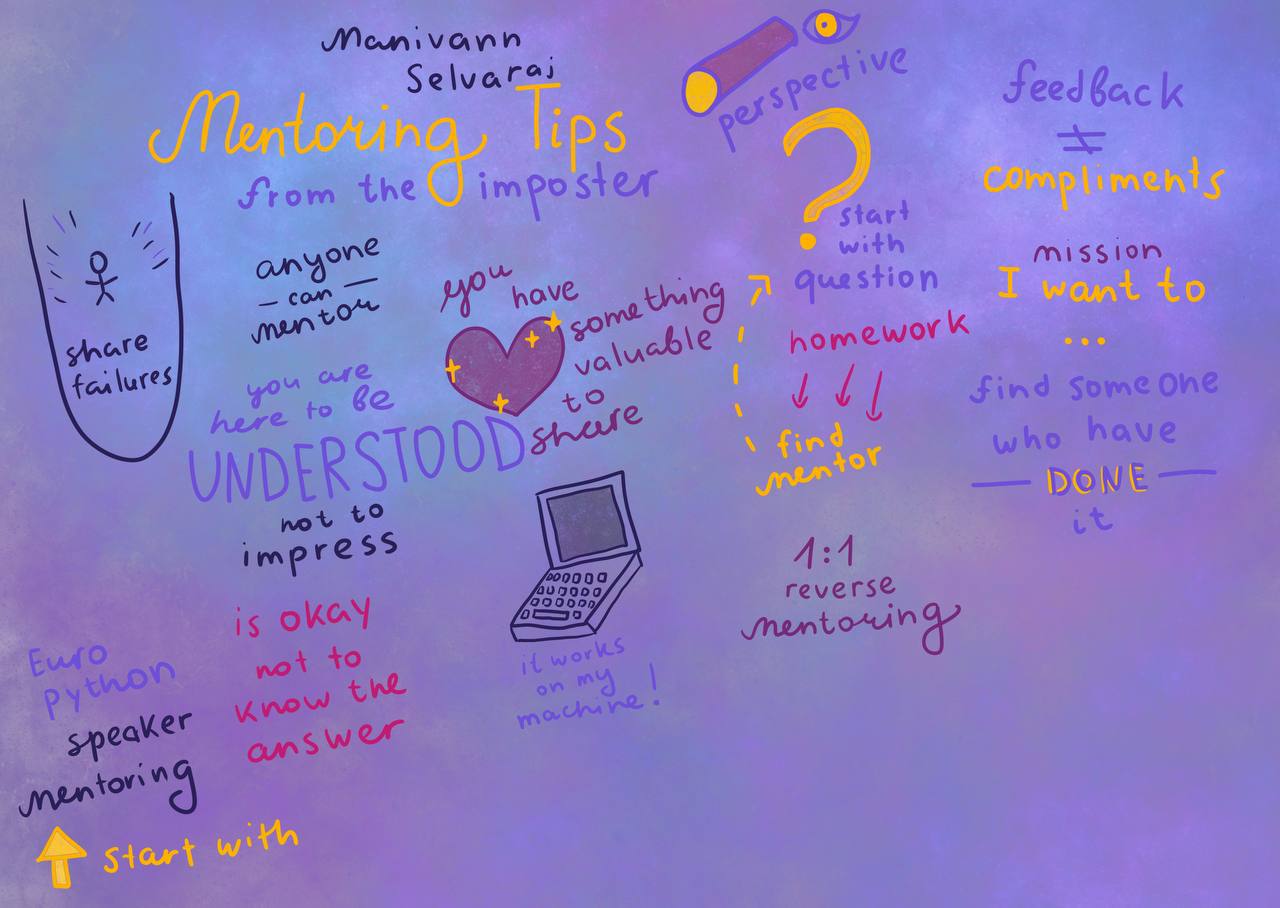 Manivann
Selvaraj
Mentoring Tips
from the imposter
share
failures
anyone
can
mentor
you are
here to be
UNDERSTOOD
not to
impress
is okay
not to
know the
answer
Euro
Python
speaker
mentoring
start with
you
have
something
valuable
to
share
it works
on my
machine!
perspective
?
start
with
question
homework
find
mentor
1:1
reverse
mentoring
feedback
≠
compliments
mission
I want to
...
find someone
who have
DONE
it